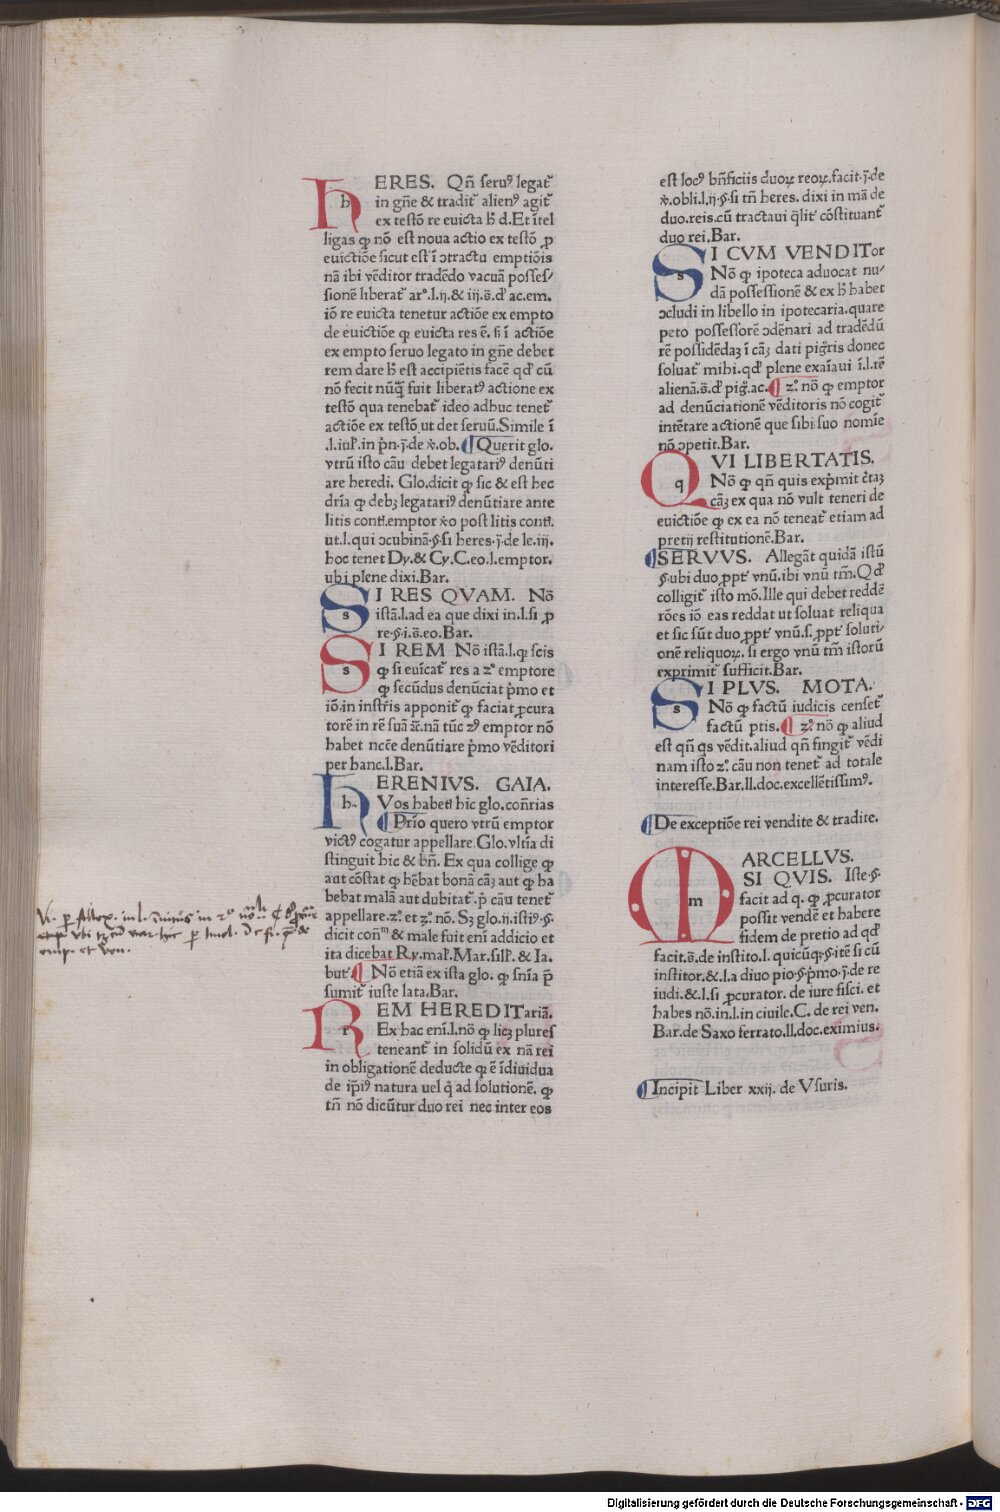 HERES. Qn̄ ſeruꝰ legat᷑
in gn̄e & tradit᷑ alienꝰ agit᷑
ex teſtō re euicta h̄ d. Et ītel
ligas ꝙ nō eſt noua actio ex teſtō ꝓ
euictiōe ſicut eſt ī ↄtractu emptiōis
nā ibi vēditor tradēdo vacuā poſſeſ-
ſionē liberat᷑ arº.l.ij.& iij.s̄.đ ac.em.
iō re euicta tenetur actiōe ex empto
de euictiōe ꝙ euicta res ē. ſi ī actiōe
ex empto ſeruo legato in gn̄e debet
rem dare h̄ eſt accipiētis facē qđ cū
nō fecit nūq̄ fuit liberatꝰ actione ex
teſtō qua tenebat᷑ ideo adhuc tenet᷑
actiōe ex teſtō ut det ſeruū. Simile ī
.l.iuꝉ.in p̄n.j.de v̄.ob. ¶ Querit glo.
vtrū iſto cāu debet legatariꝰ denūti
are heredi. Glo.dicit ꝙ ſic & eſt hec
dr̄ia ꝙ debꝫ legatariꝰ denūtiare ante
litis conꝉ.emptor v̄o poſt litis conꝉ.
ut.l.qui ↄcubinā.§.ſi heres.j.de le.iij.
hoc tenet Dy.& Cy.C.eo.l.emptor.
ubi plene dixi.Bar.
SI RES QVAM. Nō
iſtā.l.ad ea que dixi in.l.ſi ꝓ
re.§.i.s̄.eo.Bar.
SI REM Nō iſtā.l.ꝙ ſcis
ꝙ ſi euīcat᷑ res a zº emptore
ꝙ ſecūdus denūciat p̄mo et
iō.in inſtr̄is apponit᷑ ꝙ faciat ꝓcura
torē in rē ſuā &c̄.nā tūc zꝰ emptor nō
habet ncc̄e denūtiare p̄mo vēditori
per hanc.l.Bar.
HERENIVS. GAIA.
Vos habetl hic glo.con̄rias
¶ Prīo quero vtrū emptor
victꝰ cogatur appellare. Glo.vltīa di
ſtinguit hic & bn̄. Ex qua collige ꝙ
aut cōſtat ꝙ hēbat bonā cāꝫ aut ꝙ ha
bebat malā aut dubitat᷑.p̄ cāu tenet᷑
appellare.zº.et zº.nō. Sꝫ glo.ij.iſtiꝰ.§.
dicit con̄ᵐ & male fuit enī addicio et
ita dicebat Ry.maꝉ.Mar.ſilꝉ.& Ia.
but᷑ ¶ Nō etiā ex iſta glo. ꝙ ſn̄ia p̄
ſumit᷑ iuſte lata.Bar.
REM HEREDITariā.
Ex hac enī.l.nō ꝙ licꝫ plures
teneant᷑ in ſolidū ex nā rei
in obligationē deducte ꝙ ē īdiuidua
de ip̄iꝰ natura uel q̄ ad ſolutionē. ꝙ
tn̄ nō dicūtur duo rei nec inter eos
eſt locꝰ bn̄ficiis duoꝝ reoꝝ.facit.j.de
v̄.obli.l.ij.§.ſi tn̄ heres. dixi in mā de
duo.reis.cū tractaui q̄lit᷑ cōſtituant᷑
duo rei.Bar.
SI CVM VENDITor
Nō ꝙ ipoteca aduocat nu-
dā poſſeſſionē & ex h̄ habet
ↄcludi in libello in ipotecaria.quare
peto poſſeſſorē ↄdēnari ad tradēdū
rē poſſidēdaꝫ ī cāꝫ dati piḡris donec
ſoluat᷑ mihi.qđ plene exaīaui ī.l.rē
alienā.s̄.đ piḡ.ac. ¶ zº.nō ꝙ emptor
ad denūciationē vēditoris nō cogit᷑
intētare actionē que ſibi ſuo nomīe
nō ↄpetit.Bar.
QVI LIBERTATIS.
Nō ꝙ qn̄ quis exp̄mit c̄taꝫ
cāꝫ ex qua nō vult teneri de
euictiōe ꝙ ex ea nō teneat᷑ etiam ad
pretij reſtitutionē.Bar.
¶ SERVVS. Allegāt quidā iſtū
§.ubi duo ꝓpt᷑ vnū.ibi vnū tm̄.Qđ
colligit᷑ iſto mō.Ille qui debet reddē
rōes iō eas reddat ut ſoluat reliqua
et ſic ſūt duo ꝓpt᷑ vnū.ſ.ꝓpt᷑ ſoluti-
onē reliquoꝝ. ſi ergo vnū tm̄ iſtorū
exprimit᷑ ſufficit.Bar.
SI PLVS. MOTA.
Nō ꝙ factū iudicis cenſet᷑
factū ptis. ¶ zº.nō ꝙ aliud
eſt qn̄ qs vēdit.aliud qn̄ fingit᷑ vēdi
nam iſto zº.cāu non tenet᷑ ad totale
intereſſe.Bar.ll.doc.excellētiſſimꝰ.
¶ De exceptiōe rei vendite & tradite.
MARCELLVS.
SI QVIS. Iſte.§.
facit ad q. ꝙ ꝓcurator
poſſit vendē et habere
fidem de pretio ad qđ
facit.s̄.de inſtito.l. quicūqꝫ.§.itē ſi cū
inſtitor.&.l.a diuo pio.§.p̄mo.j.de re
iudi.&.l.ſi ꝓcurator. de iure fiſci. et
habes nō.in.l.in ciuile.C. de rei ven.
Bar.de Saxo ferrato.ll.doc.eximius.
¶ Incipit Liber xxij. de Vſuris.
Digitalisierung gefördert durch die Deutsche Forschungsgemeinschaft - DFG